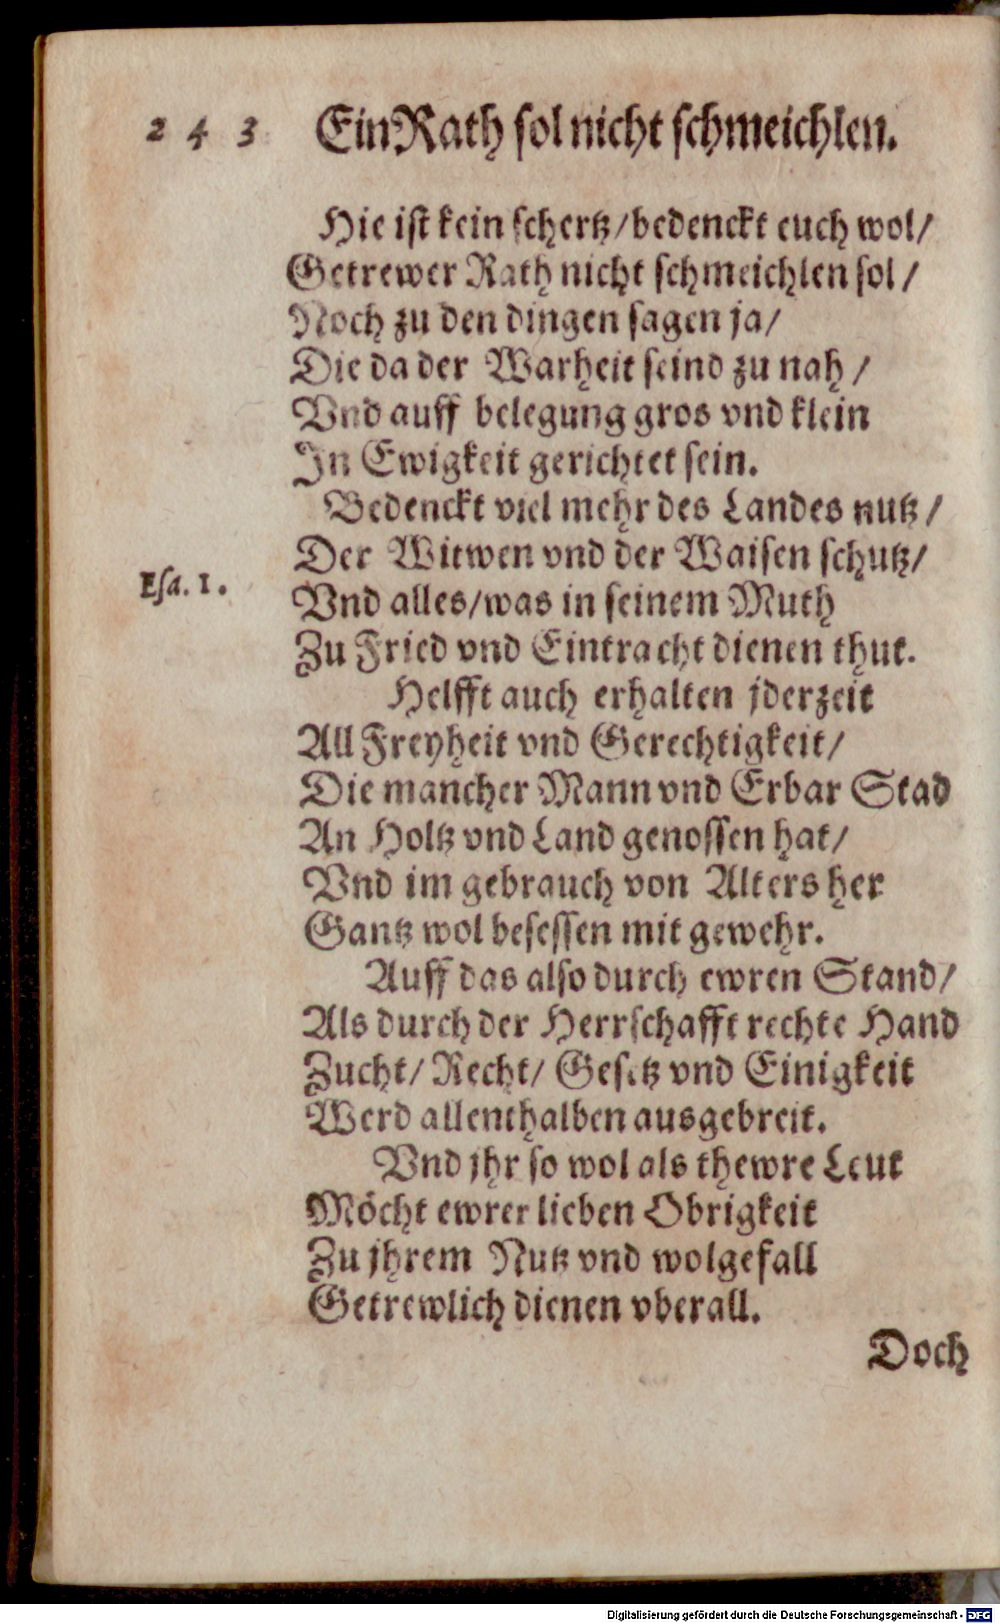 243 Ein Rath sol nicht schmeichlen.
Hie ist kein schertz/bedenckt euch wol/
Getrewer Rath nicht schmeichlen sol/
Noch zu den dingen sagen ja/
Die da der Warheit seind zu nah/
Vnd auff belegung gros vnd klein
In Ewigkeit gerichtet sein.
Bedenckt viel mehr des Landes nutz/
Der Witwen vnd der Waisen schutz/
Esa. 1.
Vnd alles/was in seinem Muth
Zu Fried vnd Eintracht dienen thut.
Helfft auch erhalten jderzeit
All Freyheit vnd Gerechtigkeit/
Die mancher Mann vnd Erbar Stad
An Holtz vnd Land genossen hat/
Vnd im gebrauch von Alters her
Gantz wol besessen mit gewehr.
Auff das also durch ewren Stand/
Als durch der Herrschafft rechte Hand
Zucht/Recht/Gesetz vnd Einigkeit
Werd allenthalben ausgebreit.
Vnd jhr so wol als thewre Leut
Möcht ewrer lieben Obrigkeit
Zu jhrem Nutz vnd wolgefall
Getrewlich dienen vberall.
Doch
Digitalisierung gefördert durch die Deutsche Forschungsgemeinschaft - DFG